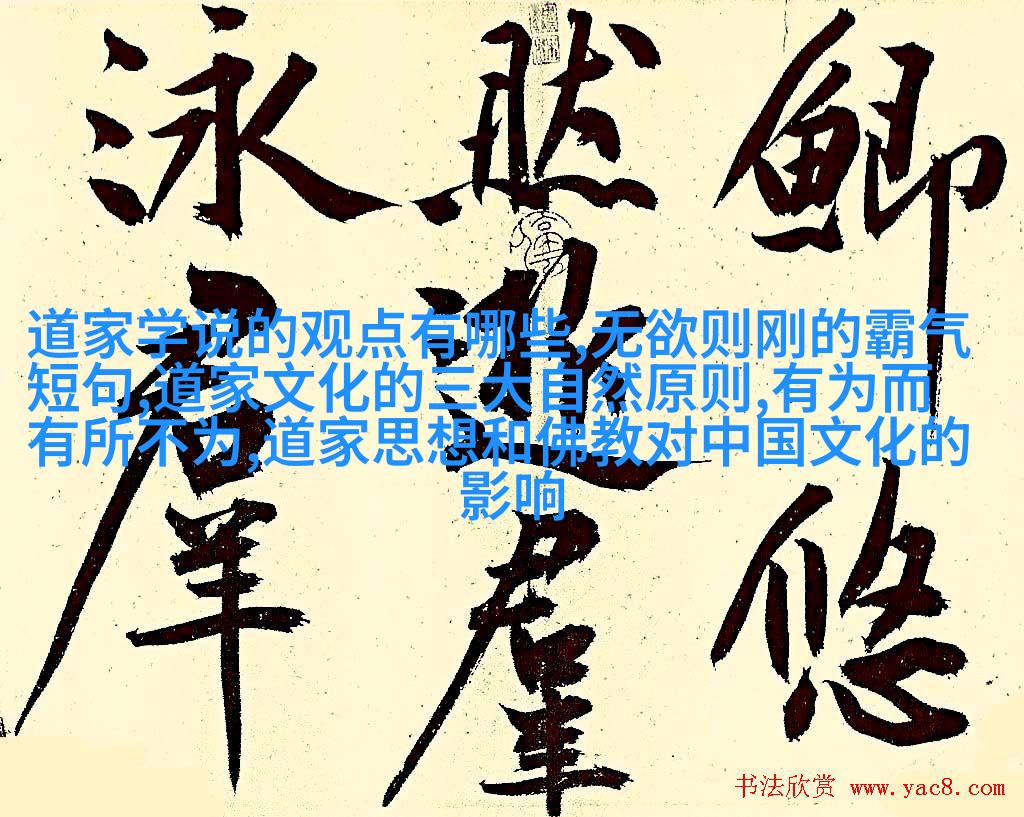 悠
然羣
泳羣
道家学说的观点有哪些,无欲则刚的霸气
短句,道家文化的三大自然原则,有为而
有所不为,道家思想和佛教对中国文化的
影响
书法欣赏 www.yac8.com